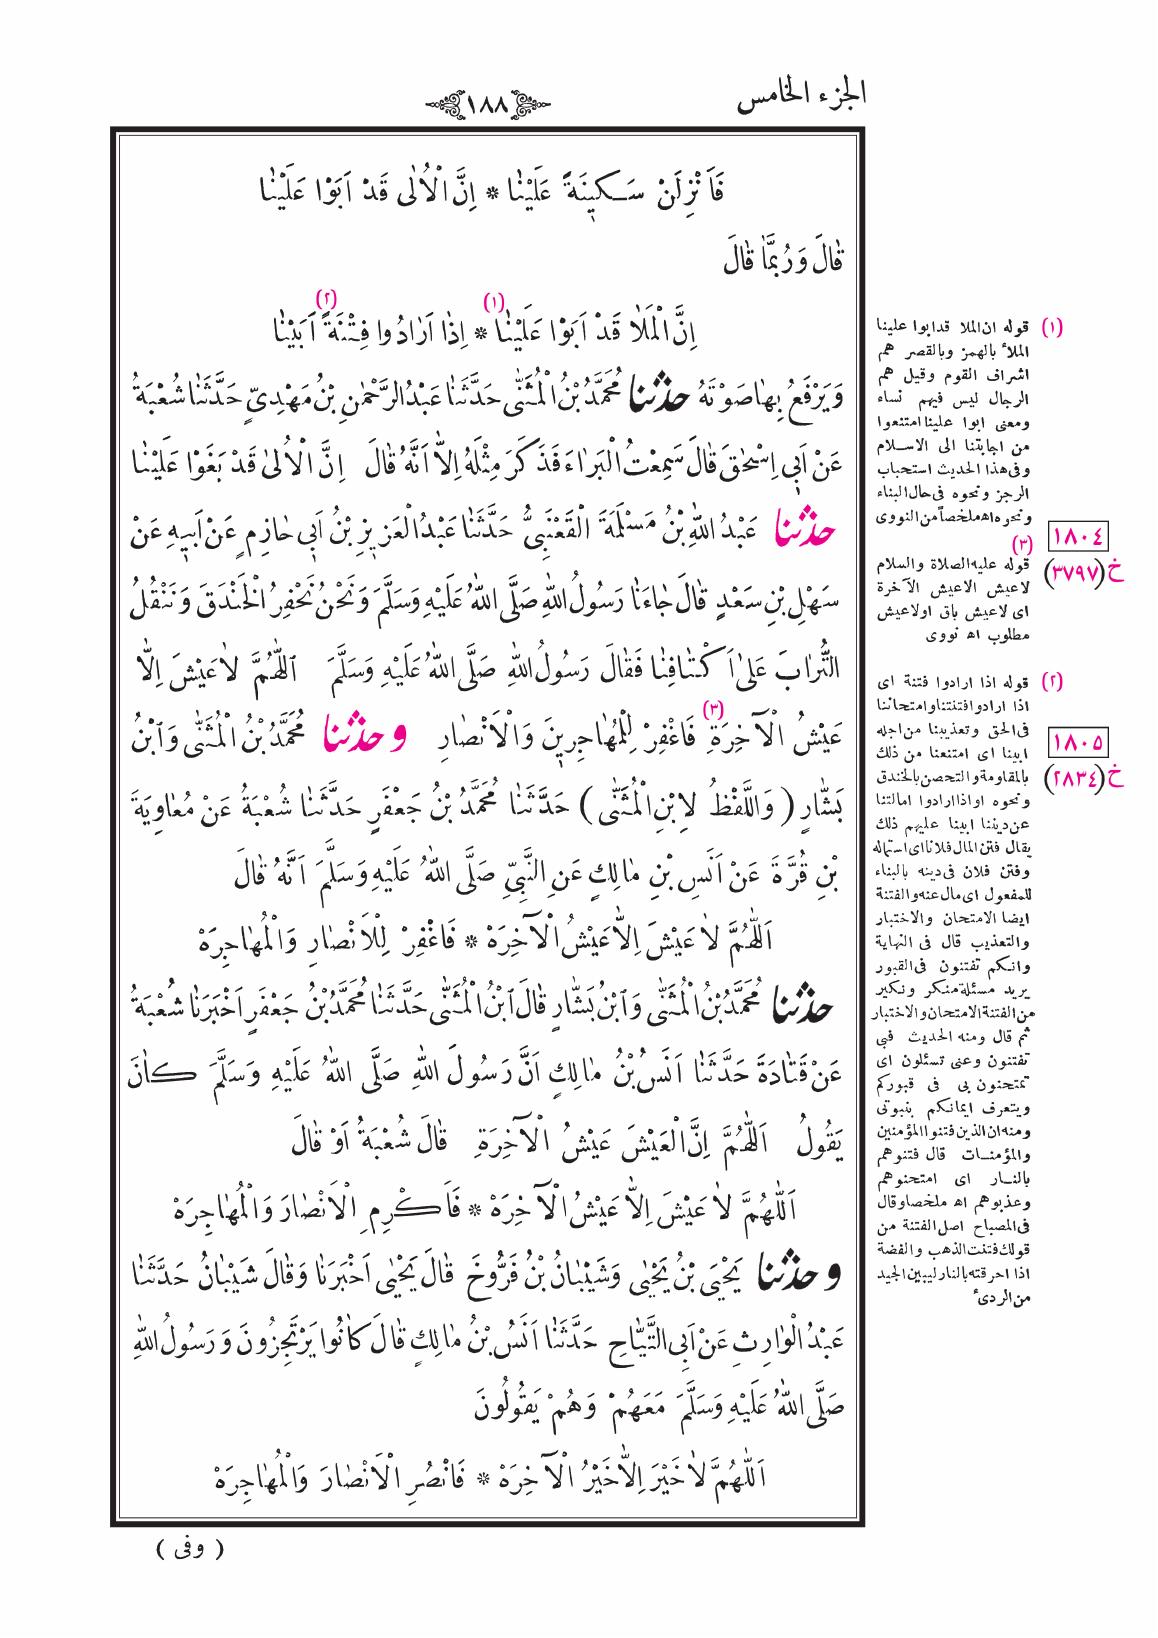 الجزء الخامس
١٨٨
فَاَنْزِلَنْ سَكِينَةً عَلَيْنَا * اِنَّ الْاُلٰى قَدْ اَبَوْا عَلَيْنَا
قَالَ وَرُبَّمَا قَالَ
اِنَّ الْمَلَا قَدْ اَبَوْا عَلَيْنَا (١) * اِذَا اَرَادُوا فِتْنَةً (٢) اَبَيْنَا
وَيَرْفَعُ بِهَا صَوْتَهُ حدثنا مُحَمَّدُ بْنُ الْمُثَنّٰى حَدَّثَنَا عَبْدُ الرَّحْمٰنِ بْنُ مَهْدِيٍّ حَدَّثَنَا شُعْبَةُ
عَنْ اَبِي اِسْحٰقَ قَالَ سَمِعْتُ الْبَرَاءَ فَذَكَرَ مِثْلَهُ اِلَّا اَنَّهُ قَالَ اِنَّ الْاُلىٰ قَدْ بَغَوْا عَلَيْنَا
حدثنا عَبْدُ اللّٰهِ بْنُ مَسْلَمَةَ الْقَعْنَبِيُّ حَدَّثَنَا عَبْدُ الْعَزِيزِ بْنُ اَبِي حَازِمٍ عَنْ اَبِيهِ عَنْ
سَهْلِ بْنِ سَعْدٍ قَالَ جَاءَنَا رَسُولُ اللّٰهِ صَلَّى اللّٰهُ عَلَيْهِ وَسَلَّمَ وَنَحْنُ نَحْفِرُ الْخَنْدَقَ وَنَنْقُلُ
التُّرَابَ عَلىٰ اَكْتَافِنَا فَقَالَ رَسُولُ اللّٰهِ صَلَّى اللّٰهُ عَلَيْهِ وَسَلَّمَ اَللّٰهُمَّ لَا عَيْشَ اِلَّا
عَيْشُ الْآخِرَةِ (٣) فَاغْفِرْ لِلْمُهَاجِرِينَ وَالْاَنْصَارِ وحدثنا مُحَمَّدُ بْنُ الْمُثَنّٰى وَابْنُ
بَشَّارٍ ( وَاللَّفْظُ لِابْنِ الْمُثَنّٰى ) حَدَّثَنَا مُحَمَّدُ بْنُ جَعْفَرٍ حَدَّثَنَا شُعْبَةُ عَنْ مُعَاوِيَةَ
بْنِ قُرَّةَ عَنْ اَنَسِ بْنِ مَالِكٍ عَنِ النَّبِيِّ صَلَّى اللّٰهُ عَلَيْهِ وَسَلَّمَ اَنَّهُ قَالَ
اَللّٰهُمَّ لَا عَيْشَ اِلَّا عَيْشُ الْآخِرَهْ * فَاغْفِرْ لِلْاَنْصَارِ وَالْمُهَاجِرَهْ
حدثنا مُحَمَّدُ بْنُ الْمُثَنّٰى وَابْنُ بَشَّارٍ قَالَ ابْنُ الْمُثَنّٰى حَدَّثَنَا مُحَمَّدُ بْنُ جَعْفَرٍ اَخْبَرَنَا شُعْبَةُ
عَنْ قَتَادَةَ حَدَّثَنَا اَنَسُ بْنُ مَالِكٍ اَنَّ رَسُولَ اللّٰهِ صَلَّى اللّٰهُ عَلَيْهِ وَسَلَّمَ كَانَ
يَقُولُ اَللّٰهُمَّ اِنَّ الْعَيْشَ عَيْشُ الْآخِرَةِ قَالَ شُعْبَةُ اَوْ قَالَ
اَللّٰهُمَّ لَا عَيْشَ اِلَّا عَيْشُ الْآخِرَهْ * فَاَكْرِمِ الْاَنْصَارَ وَالْمُهَاجِرَهْ
وحدثنا يَحْيَى بْنُ يَحْيٰى وَشَيْبَانُ بْنُ فَرُّوخَ قَالَ يَحْيٰى اَخْبَرَنَا وَقَالَ شَيْبَانُ حَدَّثَنَا
عَبْدُ الْوَارِثِ عَنْ اَبِي التَّيَّاحِ حَدَّثَنَا اَنَسُ بْنُ مَالِكٍ قَالَ كَانُوا يَرْتَجِزُونَ وَرَسُولُ اللّٰهِ
صَلَّى اللّٰهُ عَلَيْهِ وَسَلَّمَ مَعَهُمْ وَهُمْ يَقُولُونَ
اَللّٰهُمَّ لَا خَيْرَ اِلَّا خَيْرُ الْآخِرَهْ * فَانْصُرِ الْاَنْصَارَ وَالْمُهَاجِرَهْ
( وفى )
(١) قوله ان الملا قد ابوا علينا
الملأ بالهمز وبالقصر هم
اشراف القوم وقيل هم
الرجال ليس فيهم نساء
ومعنى ابوا علينا امتنعوا
من اجابتنا الى الاسلام
وفى هذا الحديث استحباب
الرجز ونحوه فى حال البناء
ونحوه اه ملخصاً من النووى
(٣)
قوله عليه الصلاة والسلام
لا عيش الا عيش الآخرة
اى لا عيش باق او لا عيش
مطلوب اه نووى
(٢) قوله اذا ارادوا فتنة اى
اذا ارادوا فتنتنا وامتحاننا
فى الحق وتعذيبنا من اجله
ابينا اى امتنعنا من ذلك
بالمقاومة والتحصن بالخندق
ونحوه او اذا ارادوا امالتنا
عن ديننا ابينا عليهم ذلك
يقال فتن المال فلانا اى استماله
وفتن فلان فى دينه بالبناء
للمفعول اى مال عنه والفتنة
ايضا الامتحان والاختبار
والتعذيب قال فى النهاية
وانكم تفتنون فى القبور
يريد مسئلة منكر ونكير
من الفتنة الامتحان والاختبار
ثم قال ومنه الحديث فبى
تفتنون وعنى تسئلون اى
تمتحنون بى فى قبوركم
ويتعرف ايمانكم بنبوتى
ومنه ان الذين فتنوا المؤمنين
والمؤمنات قال فتنوهم
بالنار اى امتحنوهم
وعذبوهم اه ملخصا وقال
فى المصباح اصل الفتنة من
قولك فتنت الذهب والفضة
اذا احرقته بالنار ليبين الجيد
من الردىء
١٨٠٤
خ (٣٧٩٧)
١٨٠٥
خ (٢٨٣٤)